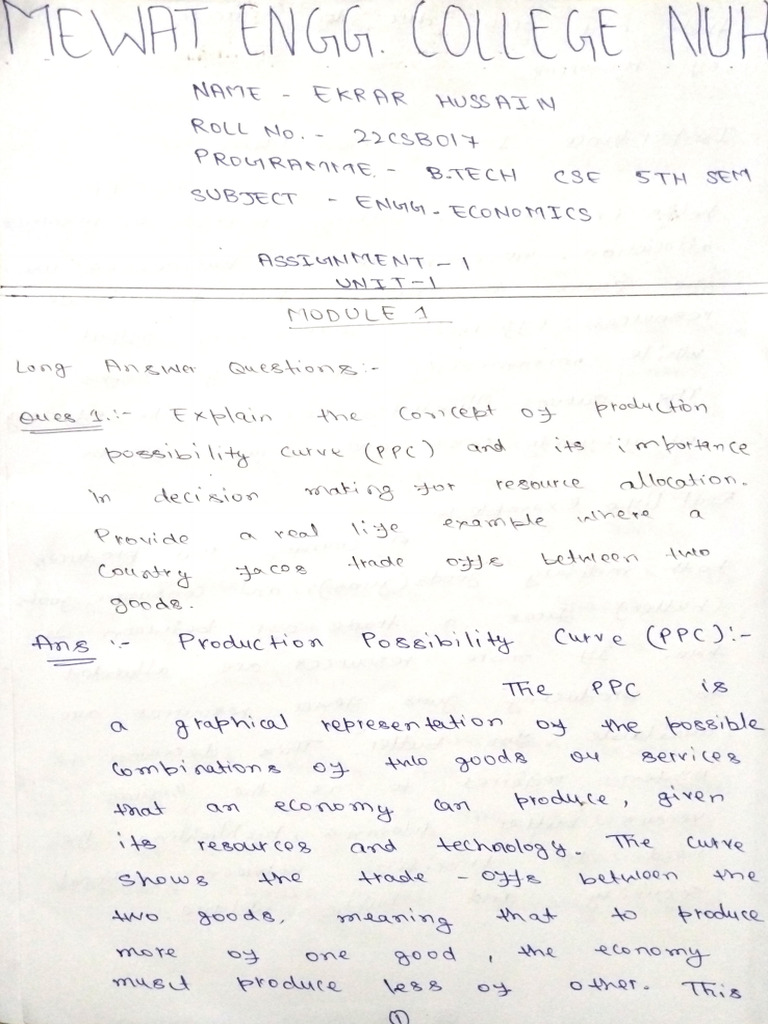 MEWAT ENGG. COLLEGE NUH
NAME - EKRAR HUSSAIN
ROLL NO. - 22CSB017
PROGRAMME - B.TECH CSE 5TH SEM
SUBJECT - ENGG. ECONOMICS
ASSIGNMENT - 1
UNIT - 1
MODULE 1
Long Answer Questions:-
Ques 1.:- Explain the concept of production
possibility curve (PPC) and its importance
in decision making for resource allocation.
Provide a real life example where a
country faces trade offs between two
goods.
Ans :- Production Possibility Curve (PPC):-
The PPC is
a graphical representation of the possible
combinations of two goods or services
that an economy can produce, given
its resources and technology. The curve
shows the trade - offs between the
two goods, meaning that to produce
more of one good, the economy
must produce less of other. This
1